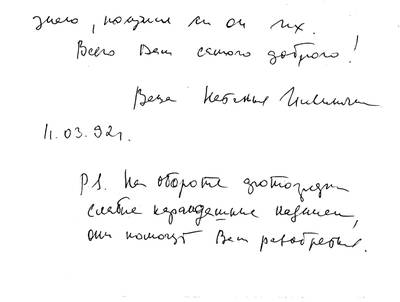 знаю, получил ли он их.
Всего Вам самого доброго!
Ваша Наталья
11.03.92г.
P.S. На обороте фотографии
слабые карандашные надписи,
они помогут Вам разобраться.